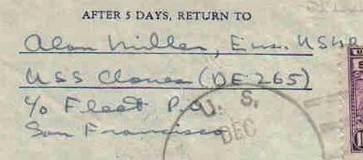 AFTER 5 DAYS, RETURN TO
Alan Miller, Ens. USNR
USS Cloues (DE 265)
c/o Fleet P.O.
San Francisco
U. S.
DEC